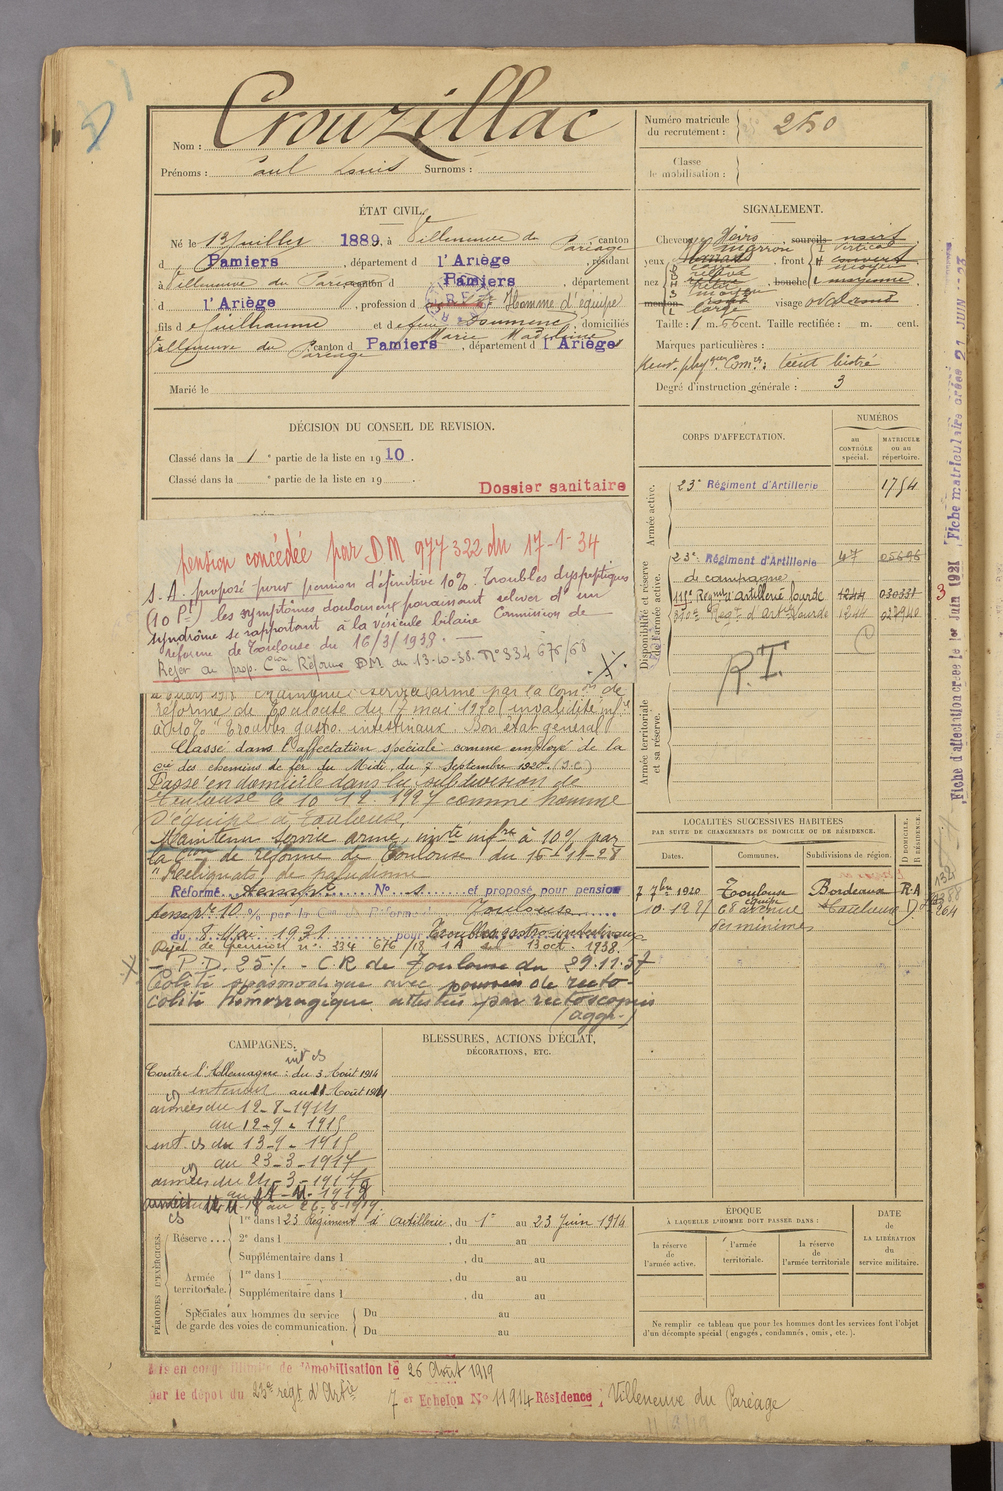 Nom : Crouzillac
Prénoms : Paul Louis Surnoms :
Numéro matricule du recrutement : 250
Classe de mobilisation :
ÉTAT CIVIL.
Né le 13 Juillet 1889, à Villeneuve du Paréage, canton
d Pamiers, département d l'Ariège, résidant
à Villeneuve du Paréage canton d Pamiers, département
d l'Ariège, profession d Homme d'équipe
fils d Guilhaume et d feue Doumenc Marie Madeleine, domiciliés
à Villeneuve du Paréage, canton d Pamiers, département d l'Ariège
Marié le
SIGNALEMENT.
Cheveux Noirs, sourcils noirs
yeux marron, front vertical
nez, bouche moyenne
menton, visage ovale
Taille : 1 m. 56 cent. Taille rectifiée : m. cent.
Marques particulières :
teint bistré
Degré d'instruction générale : 3
DÉCISION DU CONSEIL DE REVISION.
Classé dans la 1e partie de la liste en 1910.
Classé dans la e partie de la liste en 19
Dossier sanitaire
pension concédée par DM 977322 du 17-1-34
S. A. proposé pour pension définitive 10%. Troubles dyspeptiques
(10 Pt) les symptômes douloureux paraissant relever d'un
syndrôme se rapportant à la vésicule biliaire Commission de
réforme de Toulouse du 16/3/1938. —
Rejet de prop. Con de Réforme DM du 13-10-38. N° 334 676/68
Maintenu service armé par la Comon de
réforme de Toulouse du 17 mai 1920 (invalidité infre
à 10% Troubles gastro-intestinaux. Bon état général
Classé dans l'affectation spéciale comme employé de la
Cie des chemins de fer du Midi, du 7 Septembre 1920. (S.C.)
Passé en domicile dans la subdivision de
Toulouse le 10 12. 1927 comme homme
d'équipe à Toulouse.
Maintenu service armé, invté infre à 10% par
la Con de réforme de Toulouse du 16-11-28
"Reliquats de paludisme
Réformé temp. N° 1 et proposé pour pension
temp. 10 % par la Con de Réforme Toulouse
du 8 Mai 1931 pour Troubles gastro-intestinaux
Rejet de pension n° 334 676/18 1A du 13 oct. 1938.
- P.D. 25% - C.R de Toulouse du 29.11.57
Colite spasmodique avec poussées de recto-
colite hémorragique attestées par rectoscopies
(aggr-)
CORPS D'AFFECTATION.
NUMÉROS
au CONTRÔLE spécial.
MATRICULE ou au répertoire.
Armée active.
23e Régiment d'Artillerie 1754
Disponibilité et réserve de l'armée active.
23e Régiment d'Artillerie 47 05696
de campagne
116e Régmt d'artillerie lourde 1244 030331
Regt d'Artie Lourde 1244
R.T.
Armée territoriale et sa réserve.
LOCALITÉS SUCCESSIVES HABITÉES
PAR SUITE DE CHANGEMENTS DE DOMICILE OU DE RÉSIDENCE.
Dates. Communes. Subdivisions de région. D DOMICILE. R RÉSIDENCE.
7 7bre 1920 Toulouse Bordeaux R.A
10.12.27 68 avenue Toulouse D
des minimes
CAMPAGNES.
Contre l'Allemagne : du 3 Août 1914
intérieur au 11 Août 1914
armées du 12-8-1914
au 12-9-1915
int. du 13-9-1915
au 23-3-1917
armées du 24-3-1917
BLESSURES, ACTIONS D'ÉCLAT,
DÉCORATIONS, ETC.
PÉRIODES D'EXERCICES.
Réserve... 1re dans l 23 Régiment d'artillerie, du 1er au 23 Juin 1914
2e dans l, du au
Supplémentaire dans l, du au
Armée territoriale. 1re dans l, du au
Supplémentaire dans l, du au
Spéciales aux hommes du service de garde des voies de communication. Du au
Du au
ÉPOQUE
À LAQUELLE L'HOMME DOIT PASSER DANS :
la réserve de l'armée active.
l'armée territoriale.
la réserve de l'armée territoriale
DATE de LA LIBÉRATION du service militaire.
Ne remplir ce tableau que pour les hommes dont les services font l'objet
d'un décompte spécial (engagés, condamnés, omis, etc.).
Mis en congé illimité de démobilisation le 26 Août 1919
par le dépôt du 23e regt d'Artie 7 er Echelon N° 11914 Résidence : Villeneuve du Paréage
Fiche d'affectation créée le 1er Juin 1921
Fiche matriculaire créée 21 JUIN